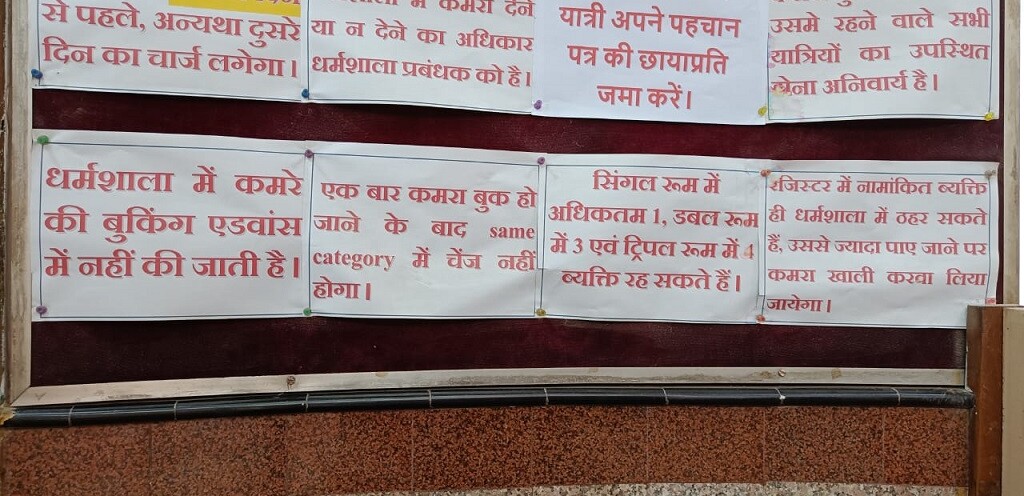 से पहले, अन्यथा दुसरे
दिन का चार्ज लगेगा।
में कमरा देने
या न देने का अधिकार
धर्मशाला प्रबंधक को है।
यात्री अपने पहचान
पत्र की छायाप्रति
जमा करें।
उसमे रहने वाले सभी
यात्रियों का उपस्थित
होना अनिवार्य है।
धर्मशाला में कमरे
की बुकिंग एडवांस
में नहीं की जाती है।
एक बार कमरा बुक हो
जाने के बाद same
category में चेंज नहीं
होगा।
सिंगल रूम में
अधिकतम 1, डबल रूम
में 3 एवं ट्रिपल रूम में 4
व्यक्ति रह सकते हैं।
रजिस्टर में नामांकित व्यक्ति
ही धर्मशाला में ठहर सकते
हैं, उससे ज्यादा पाए जाने पर
कमरा खाली करवा लिया
जायेगा।